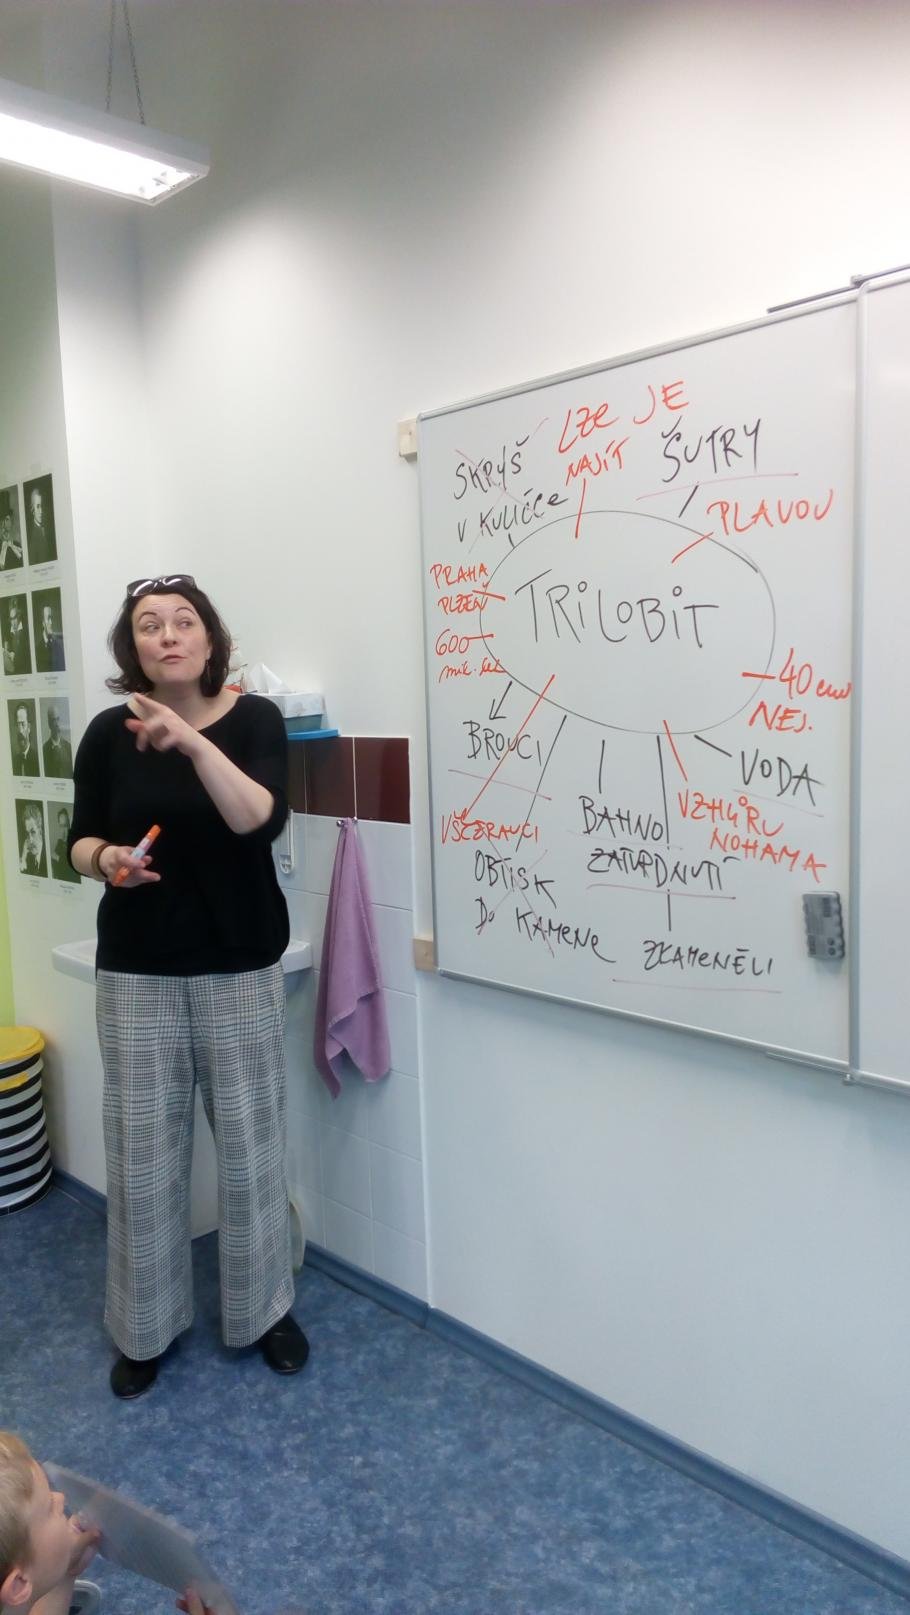 LZE JE
NAJÍT
SKRÝŠ
V KULIČCE
ŠUTRY
PLAVOU
PRAHA
PLZEŇ
600
mil. let
TRILOBIT
40 cm
NEJ.
BROUCI
VODA
VŠEŽRAVCI
OBTISK
DO KAMENE
BAHNO
ZATVRDNUTÍ
ZKAMENĚLI
VZHŮRU
NOHAMA